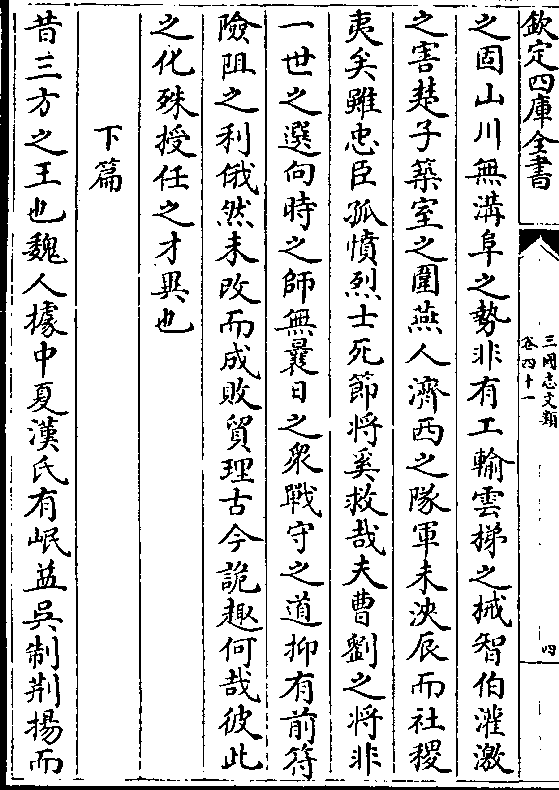 欽定四庫全書
三國志文類
卷四十一
四
之固山川無溝阜之勢非有工輸雲梯之械智伯灌激
之害楚子築室之圍燕人濟西之隊軍未浹辰而社稷
夷矣雖忠臣孤憤烈士死節將奚救哉夫曹劉之將非
一世之選向時之師無曩日之衆戰守之道抑有前符
險阻之利俄然未改而成敗貿理古今詭趣何哉彼此
之化殊授任之才異也
下篇
昔三方之王也魏人據中夏漢氏有岷益吳制荆揚而